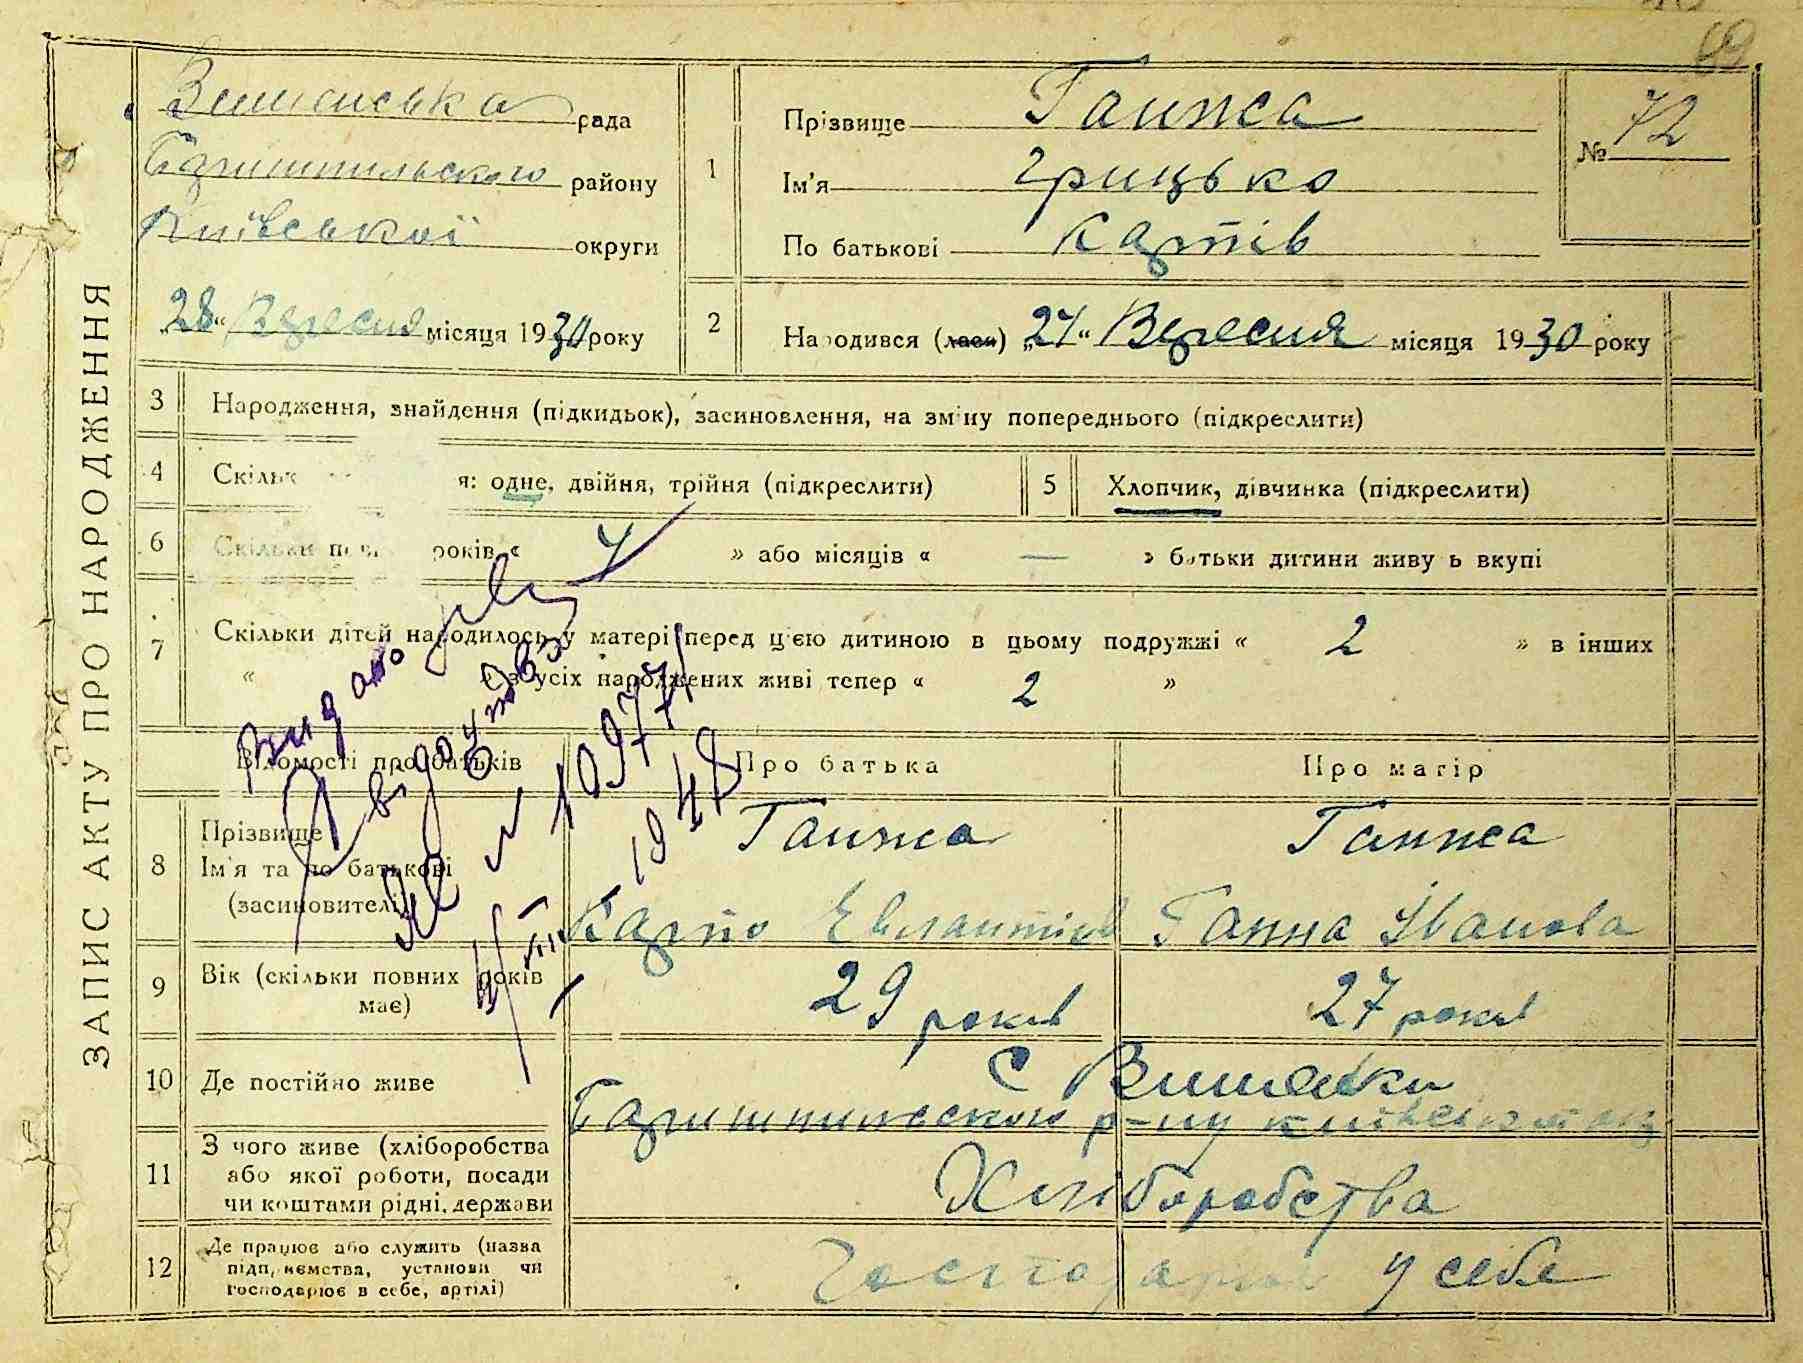 ЗАПИС АКТУ ПРО НАРОДЖЕННЯ
рада
району
Київської округи
„28“ Вересня місяця 1930 року
№ 72
1
Прізвище Ганжа
Ім'я Грицько
По батькові Карпів
2
Народився (лась) „27“ Вересня місяця 1930 року
3 Народження, знайдення (підкидьок), засиновлення, на зміну попереднього (підкреслити)
4 одне, двійня, трійня (підкреслити)
5 Хлопчик, дівчинка (підкреслити)
6 Скільки років « 7 » або місяців « — » батьки дитини живуть вкупі
7 Скільки дітей народилось у матері перед цією дитиною в цьому подружжі « 2 » в інших
« » з усіх народжених живі тепер « 2 »
Відомості про батьків Про батька Про матір
8 Прізвище Ганжа Ганжа
Ім'я та по батькові
(засиновителі) Карпо Ганна Іванова
9 Вік (скільки повних років має) 29 років 27 років
10 Де постійно живе с Вишеньки
р-ну
11 З чого живе (хліборобства
або якої роботи, посади
чи коштами рідні, держави Хліборобства
12 Де працює або служить (назва
підприємства, установи чи
господарює в себе, артілі) у себе
Видано
1948